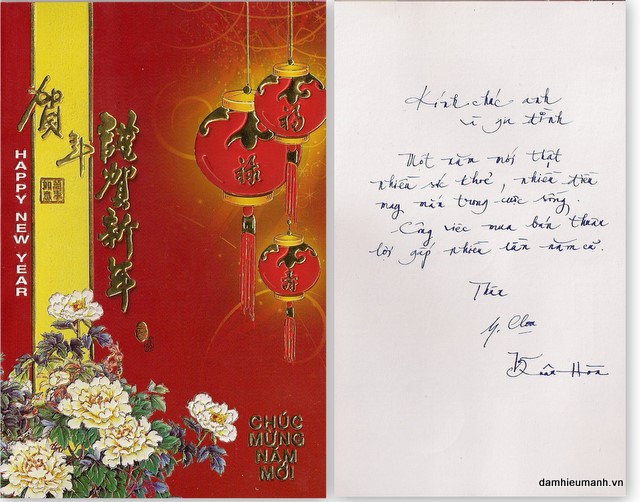 賀年
謹賀新年
HAPPY NEW YEAR
福
祿
壽
CHÚC
MỪNG
NĂM
MỚI
Kính chúc anh
và gia đình
Một năm mới thật
nhiều sức khoẻ, nhiều tiền
may mắn trong cuộc sống.
Công việc mua bán thuận
lợi gấp nhiều lần năm cũ.
Thân
Xuân Hòa
damhieumanh.vn